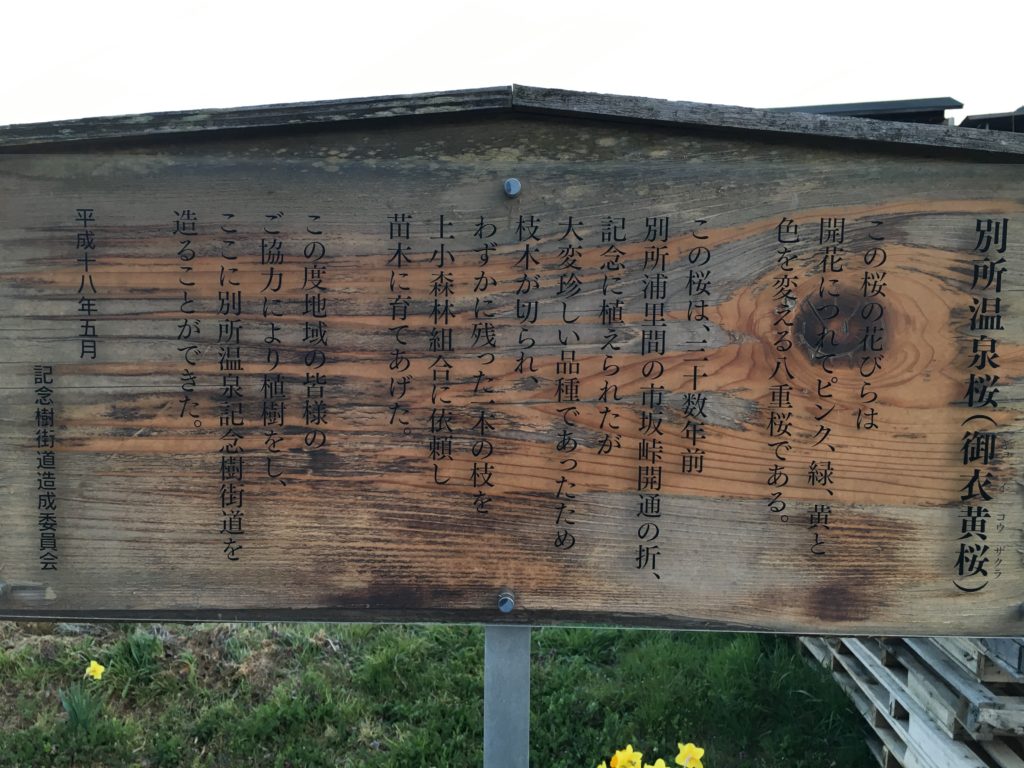 別所温泉桜(御衣黄桜)
ギョ イ コウ ザクラ
この桜の花びらは
開花につれてピンク、緑、黄と
色を変える八重桜である。
この桜は、三十数年前
別所浦里間の市坂峠開通の折、
記念に植えられたが
大変珍しい品種であったため
枝木が切られ、
わずかに残った一本の枝を
上小森林組合に依頼し
苗木に育てあげた。
この度地域の皆様の
ご協力により植樹をし、
ここに別所温泉記念樹街道を
造ることができた。
平成十八年五月
記念樹街道造成委員会